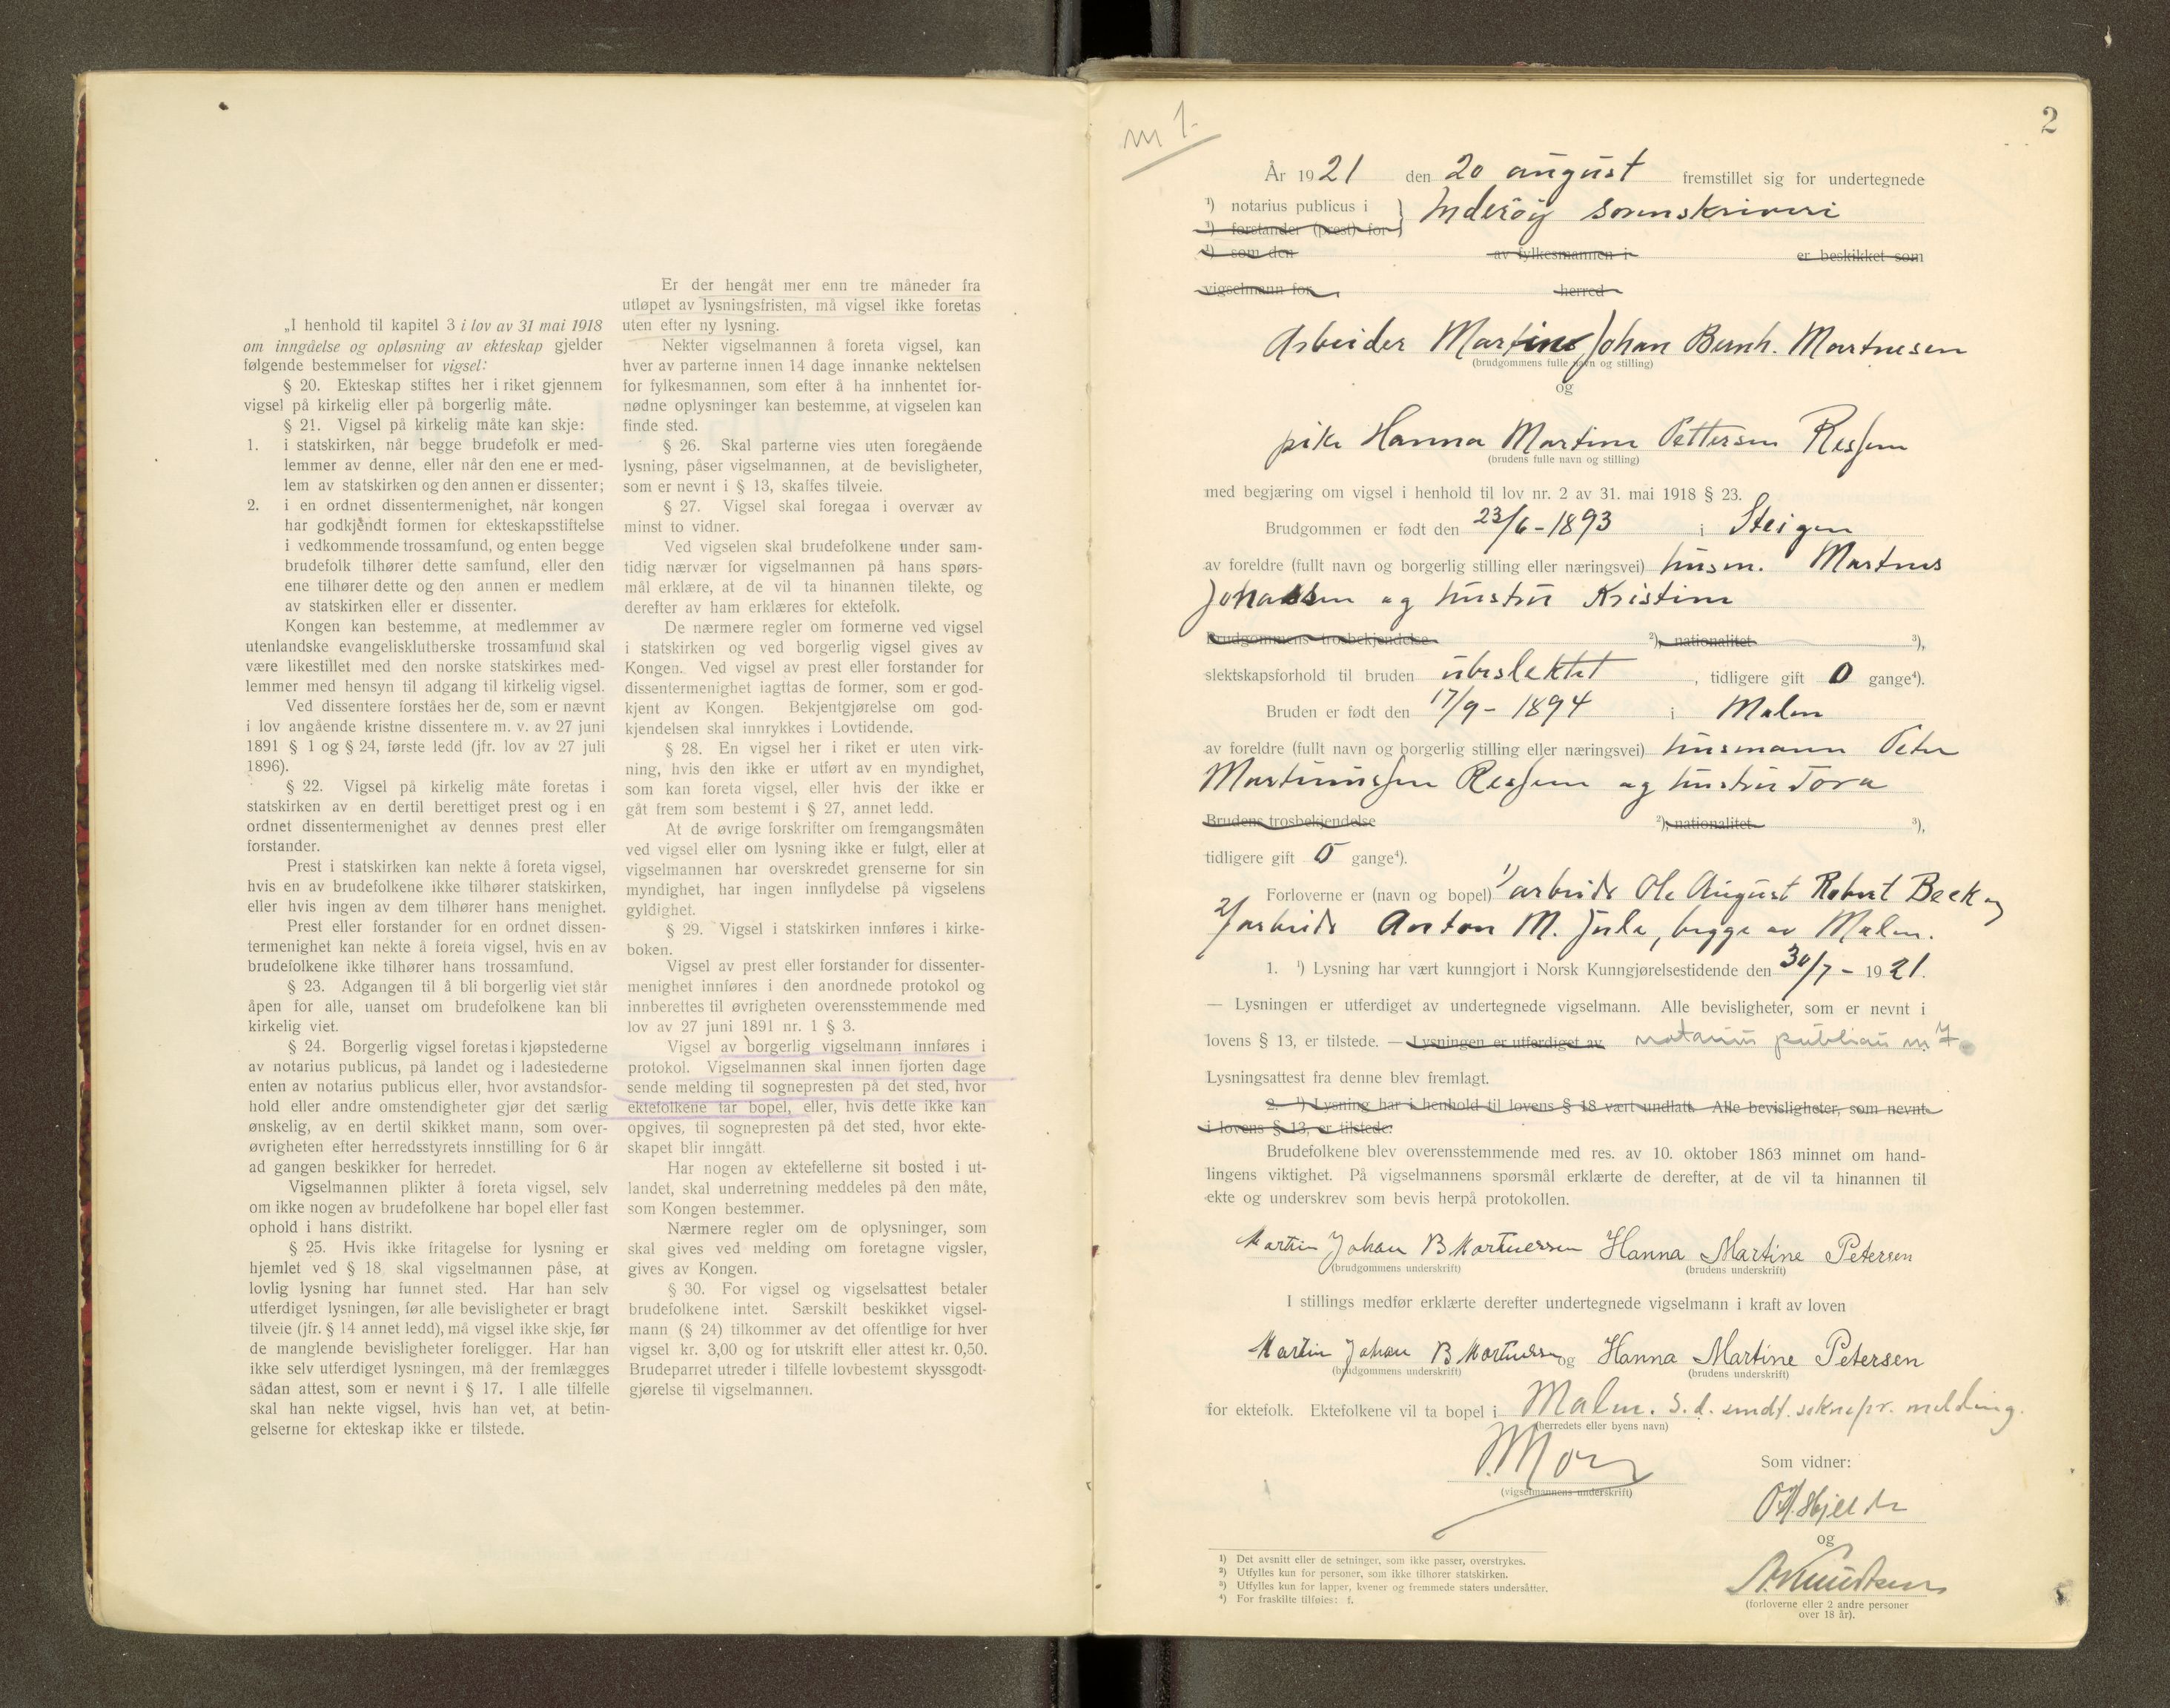 „I henhold til kapitel 3 i lov av 31 mai 1918
om inngåelse og opløsning av ekteskap gjelder
følgende bestemmelser for vigsel:
§ 20. Ekteskap stiftes her i riket gjennem
vigsel på kirkelig eller på borgerlig måte.
§ 21. Vigsel på kirkelig måte kan skje:
1. i statskirken, når begge brudefolk er med-
lemmer av denne, eller når den ene er med-
lem av statskirken og den annen er dissenter;
2. i en ordnet dissentermenighet, når kongen
har godkjendt formen for ekteskapsstiftelse
i vedkommende trossamfund, og enten begge
brudefolk tilhører dette samfund, eller den
ene tilhører dette og den annen er medlem
av statskirken eller er dissenter.
Kongen kan bestemme, at medlemmer av
utenlandske evangelisklutherske trossamfund skal
være likestillet med den norske statskirkes med-
lemmer med hensyn til adgang til kirkelig vigsel.
Ved dissentere forståes her de, som er nævnt
i lov angående kristne dissentere m. v. av 27 juni
1891 § 1 og § 24, første ledd (jfr. lov av 27 juli
1896).
§ 22. Vigsel på kirkelig måte foretas i
statskirken av en dertil berettiget prest og i en
ordnet dissentermenighet av dennes prest eller
forstander.
Prest i statskirken kan nekte å foreta vigsel,
hvis en av brudefolkene ikke tilhører statskirken,
eller hvis ingen av dem tilhører hans menighet.
Prest eller forstander for en ordnet dissen-
termenighet kan nekte å foreta vigsel, hvis en av
brudefolkene ikke tilhører hans trossamfund.
§ 23. Adgangen til å bli borgerlig viet står
åpen for alle, uanset om brudefolkene kan bli
kirkelig viet.
§ 24. Borgerlig vigsel foretas i kjøpstederne
av notarius publicus, på landet og i ladestederne
enten av notarius publicus eller, hvor avstandsfor-
hold eller andre omstendigheter gjør det særlig
ønskelig, av en dertil skikket mann, som over-
øvrigheten efter herredsstyrets innstilling for 6 år
ad gangen beskikker for herredet.
Vigselmannen plikter å foreta vigsel, selv
om ikke nogen av brudefolkene har bopel eller fast
ophold i hans distrikt.
§ 25. Hvis ikke fritagelse for lysning er
hjemlet ved § 18 skal vigselmannen påse, at
lovlig lysning har funnet sted. Har han selv
utferdiget lysningen, før alle bevisligheter er bragt
tilveie (jfr. § 14 annet ledd), må vigsel ikke skje, før
de manglende bevisligheter foreligger. Har han
ikke selv utferdiget lysningen, må der fremlægges
sådan attest, som er nevnt i § 17. I alle tilfelle
skal han nekte vigsel, hvis han vet, at betin-
gelserne for ekteskap ikke er tilstede.
Er der hengåt mer enn tre måneder fra
utløpet av lysningsfristen, må vigsel ikke foretas
uten efter ny lysning.
Nekter vigselmannen å foreta vigsel, kan
hver av parterne innen 14 dage innanke nektelsen
for fylkesmannen, som efter å ha innhentet for-
nødne oplysninger kan bestemme, at vigselen kan
finde sted.
§ 26. Skal parterne vies uten foregående
lysning, påser vigselmannen, at de bevisligheter,
som er nevnt i § 13, skaffes tilveie.
§ 27. Vigsel skal foregaa i overvær av
minst to vidner.
Ved vigselen skal brudefolkene under sam-
tidig nærvær for vigselmannen på hans spørs-
mål erklære, at de vil ta hinannen tilekte, og
derefter av ham erklæres for ektefolk.
De nærmere regler om formerne ved vigsel
i statskirken og ved borgerlig vigsel gives av
Kongen. Ved vigsel av prest eller forstander for
dissentermenighet iagttas de former, som er god-
kjent av Kongen. Bekjentgjørelse om god-
kjendelsen skal innrykkes i Lovtidende.
§ 28. En vigsel her i riket er uten virk-
ning, hvis den ikke er utført av en myndighet,
som kan foreta vigsel, eller hvis der ikke er
gåt frem som bestemt i § 27, annet ledd.
At de øvrige forskrifter om fremgangsmåten
ved vigsel eller om lysning ikke er fulgt, eller at
vigselmannen har overskredet grenserne for sin
myndighet, har ingen innflydelse på vigselens
gyldighet.
§ 29. Vigsel i statskirken innføres i kirke-
boken.
Vigsel av prest eller forstander for dissenter-
menighet innføres i den anordnede protokol og
innberettes til øvrigheten overensstemmende med
lov av 27 juni 1891 nr. 1 § 3.
Vigsel av borgerlig vigselmann innføres i
protokol. Vigselmannen skal innen fjorten dage
sende melding til sognepresten på det sted, hvor
ektefolkene tar bopel, eller, hvis dette ikke kan
opgives, til sognepresten på det sted, hvor ekte-
skapet blir inngått.
Har nogen av ektefellerne sit bosted i ut-
landet, skal underretning meddeles på den måte,
som Kongen bestemmer.
Nærmere regler om de oplysninger, som
skal gives ved melding om foretagne vigsler,
gives av Kongen.
§ 30. For vigsel og vigselsattest betaler
brudefolkene intet. Særskilt beskikket vigsel-
mann (§ 24) tilkommer av det offentlige for hver
vigsel kr. 3,00 og for utskrift eller attest kr. 0,50.
Brudeparret utreder i tilfelle lovbestemt skyssgodt-
gjørelse til vigselmannen.
2
m 1.
År 1921 den 20 august fremstillet sig for undertegnede
¹) notarius publicus i } Inderöy sorenskriveri
¹) forstander (prest) for
¹) som den av fylkesmannen i er beskikket som
vigselmann for herred
Arbeider Martin Johan Bernh. Martnesen
(brudgommens fulle navn og stilling)
og
pike Hanna Martine Pettersen Ressem
(brudens fulle navn og stilling)
med begjæring om vigsel i henhold til lov nr. 2 av 31. mai 1918 § 23.
Brudgommen er født den 23/6-1893 i Steigen
av foreldre (fullt navn og borgerlig stilling eller næringsvei) husm. Martnus
Johansen og hustru Kristine
Brudgommens trosbekjendelse ²), nationalitet ³),
slektskapsforhold til bruden ubeslektet, tidligere gift 0 gange⁴).
Bruden er født den 17/9-1894 i Malm
av foreldre (fullt navn og borgerlig stilling eller næringsvei) husmann Peter
Martinussen Ressem og hustru Tora
Brudens trosbekjendelse ²), nationalitet ³),
tidligere gift 0 gange⁴).
Forloverne er (navn og bopel) 1/ arbeider Ole August Robert Beck og
2/ arbeider Anton M. , begge av Malm.
1. ¹) Lysning har vært kunngjort i Norsk Kunngjørelsestidende den 30/7-1921.
— Lysningen er utferdiget av undertegnede vigselmann. Alle bevisligheter, som er nevnt i
lovens § 13, er tilstede. — Lysningen er utferdiget av notarius publicus m 7
Lysningsattest fra denne blev fremlagt.
2. ¹) Lysning har i henhold til lovens § 18 vært undlatt. Alle bevisligheter, som nevnt
i lovens § 13, er tilstede.
Brudefolkene blev overensstemmende med res. av 10. oktober 1863 minnet om hand-
lingens viktighet. På vigselmannens spørsmål erklærte de derefter, at de vil ta hinannen til
ekte og underskrev som bevis herpå protokollen.
Martin Johan B Martnessen Hanna Martine Petersen
(brudgommens underskrift) (brudens underskrift)
I stillings medfør erklærte derefter undertegnede vigselmann i kraft av loven
Martin Johan B Martnessen og Hanna Martine Petersen
(brudgommens underskrift) (brudens underskrift)
for ektefolk. Ektefolkene vil ta bopel i Malm. S. d. sendt. soknepr. melding.
(herredets eller byens navn)
(vigselmannens underskrift)
Som vidner:
og
(forloverne eller 2 andre personer
over 18 år).
¹) Det avsnitt eller de setninger, som ikke passer, overstrykes.
²) Utfylles kun for personer, som ikke tilhører statskirken.
³) Utfylles kun for lapper, kvener og fremmede staters undersåtter.
⁴) For fraskilte tilføies: f.